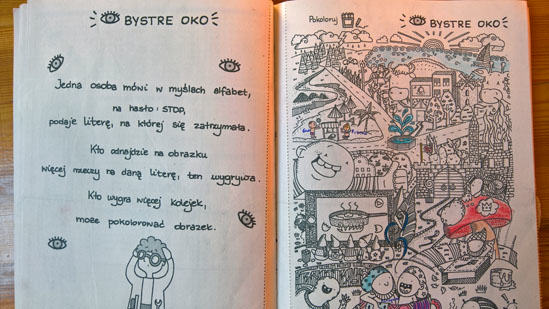 BYSTRE OKO
Jedna osoba mówi w myślach alfabet,
na hasło: STOP,
podaje literę, na której się zatrzymała.
Kto odnajdzie na obrazku
więcej rzeczy na daną literę, ten wygrywa.
Kto wygra więcej kolejek,
może pokolorować obrazek.
Pokoloruj
BYSTRE OKO